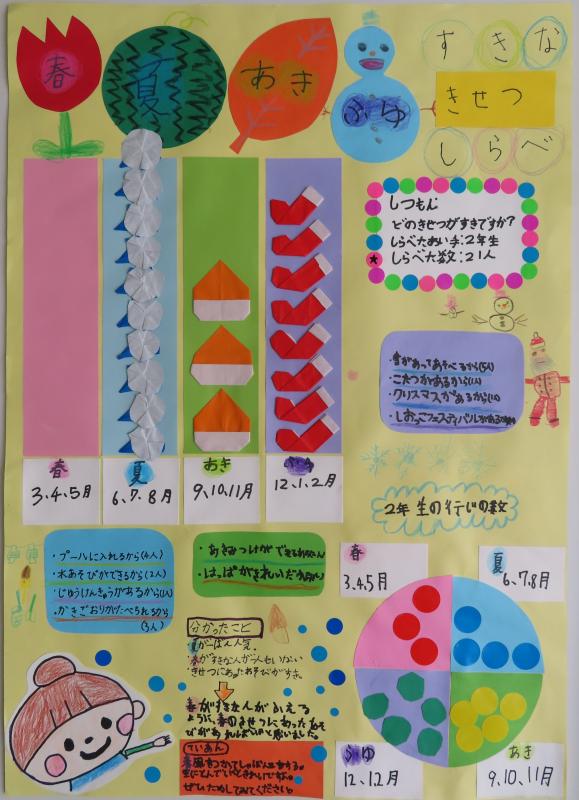 すきな
きせつ
しらべ
春
夏
あき
ふゆ
しつもん
どのきせつがすきですか?
しらべたあい手:2年生
★しらべた数:21人
・雪があってあそべるから(5人)
・こたつがあるから(1人)
・クリスマスがあるから(1人)
・しおっこフェスティバルがある
春
3、4、5月
夏
6、7、8月
あき
9、10、11月
ふゆ
12、1、2月
2年生の行じの数
・プールに入れるから(4人)
・水あそびができるから(2人)
・じゅうけんきゅうがあるから(1人)
・かきごおりがたべられるから
(3人)
・あきみつけができるから
・はっぱがきれいだから
春
3、4、5月
夏
6、7、8月
分かったこと
夏が一ばん人気。
春がすきな人が一人もいない
きせつにあったあそびがすき。
春がすきな人がふえる
ように、春のきせつにあったあそ
びがあればいいと思いました。
ていあん
ぜひためしてみてください。
ふゆ
12、12月
あき
9、10、11月